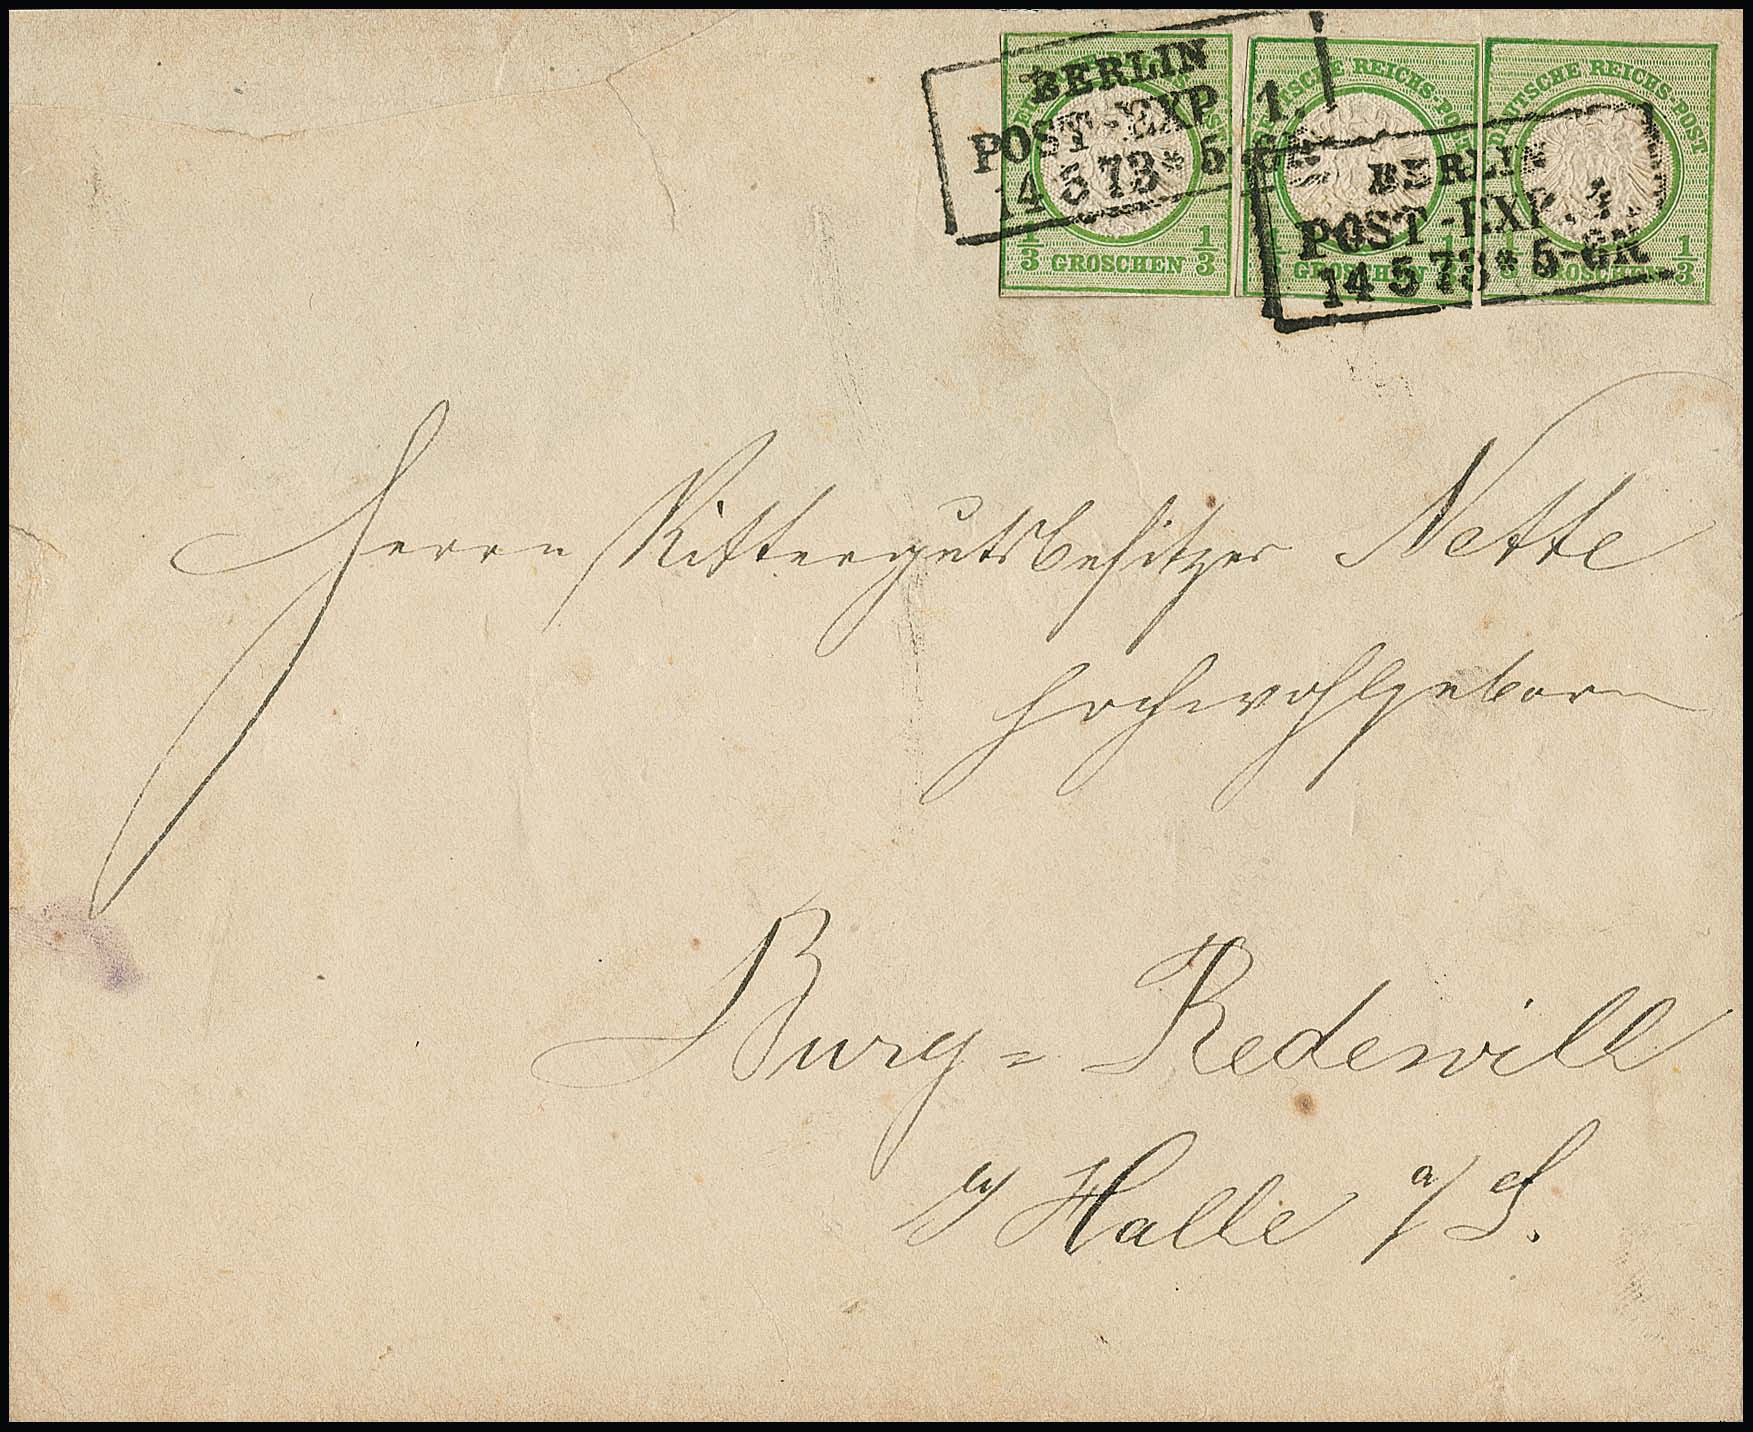 BERLIN
POST-EXP. 1.
14 5 73 * 5-6N
BERLIN
POST-EXP. 1.
14 5 73 * 5-6N
DEUTSCHE REICHS-POST
1/3 GROSCHEN 1/3
DEUTSCHE REICHS-POST
1/3 GROSCHEN 1/3
DEUTSCHE REICHS-POST
1/3 GROSCHEN 1/3
Herrn Rittergutsbesitzer Nette
Hochwohlgeborn
Burg = Redewill
Halle a/S.